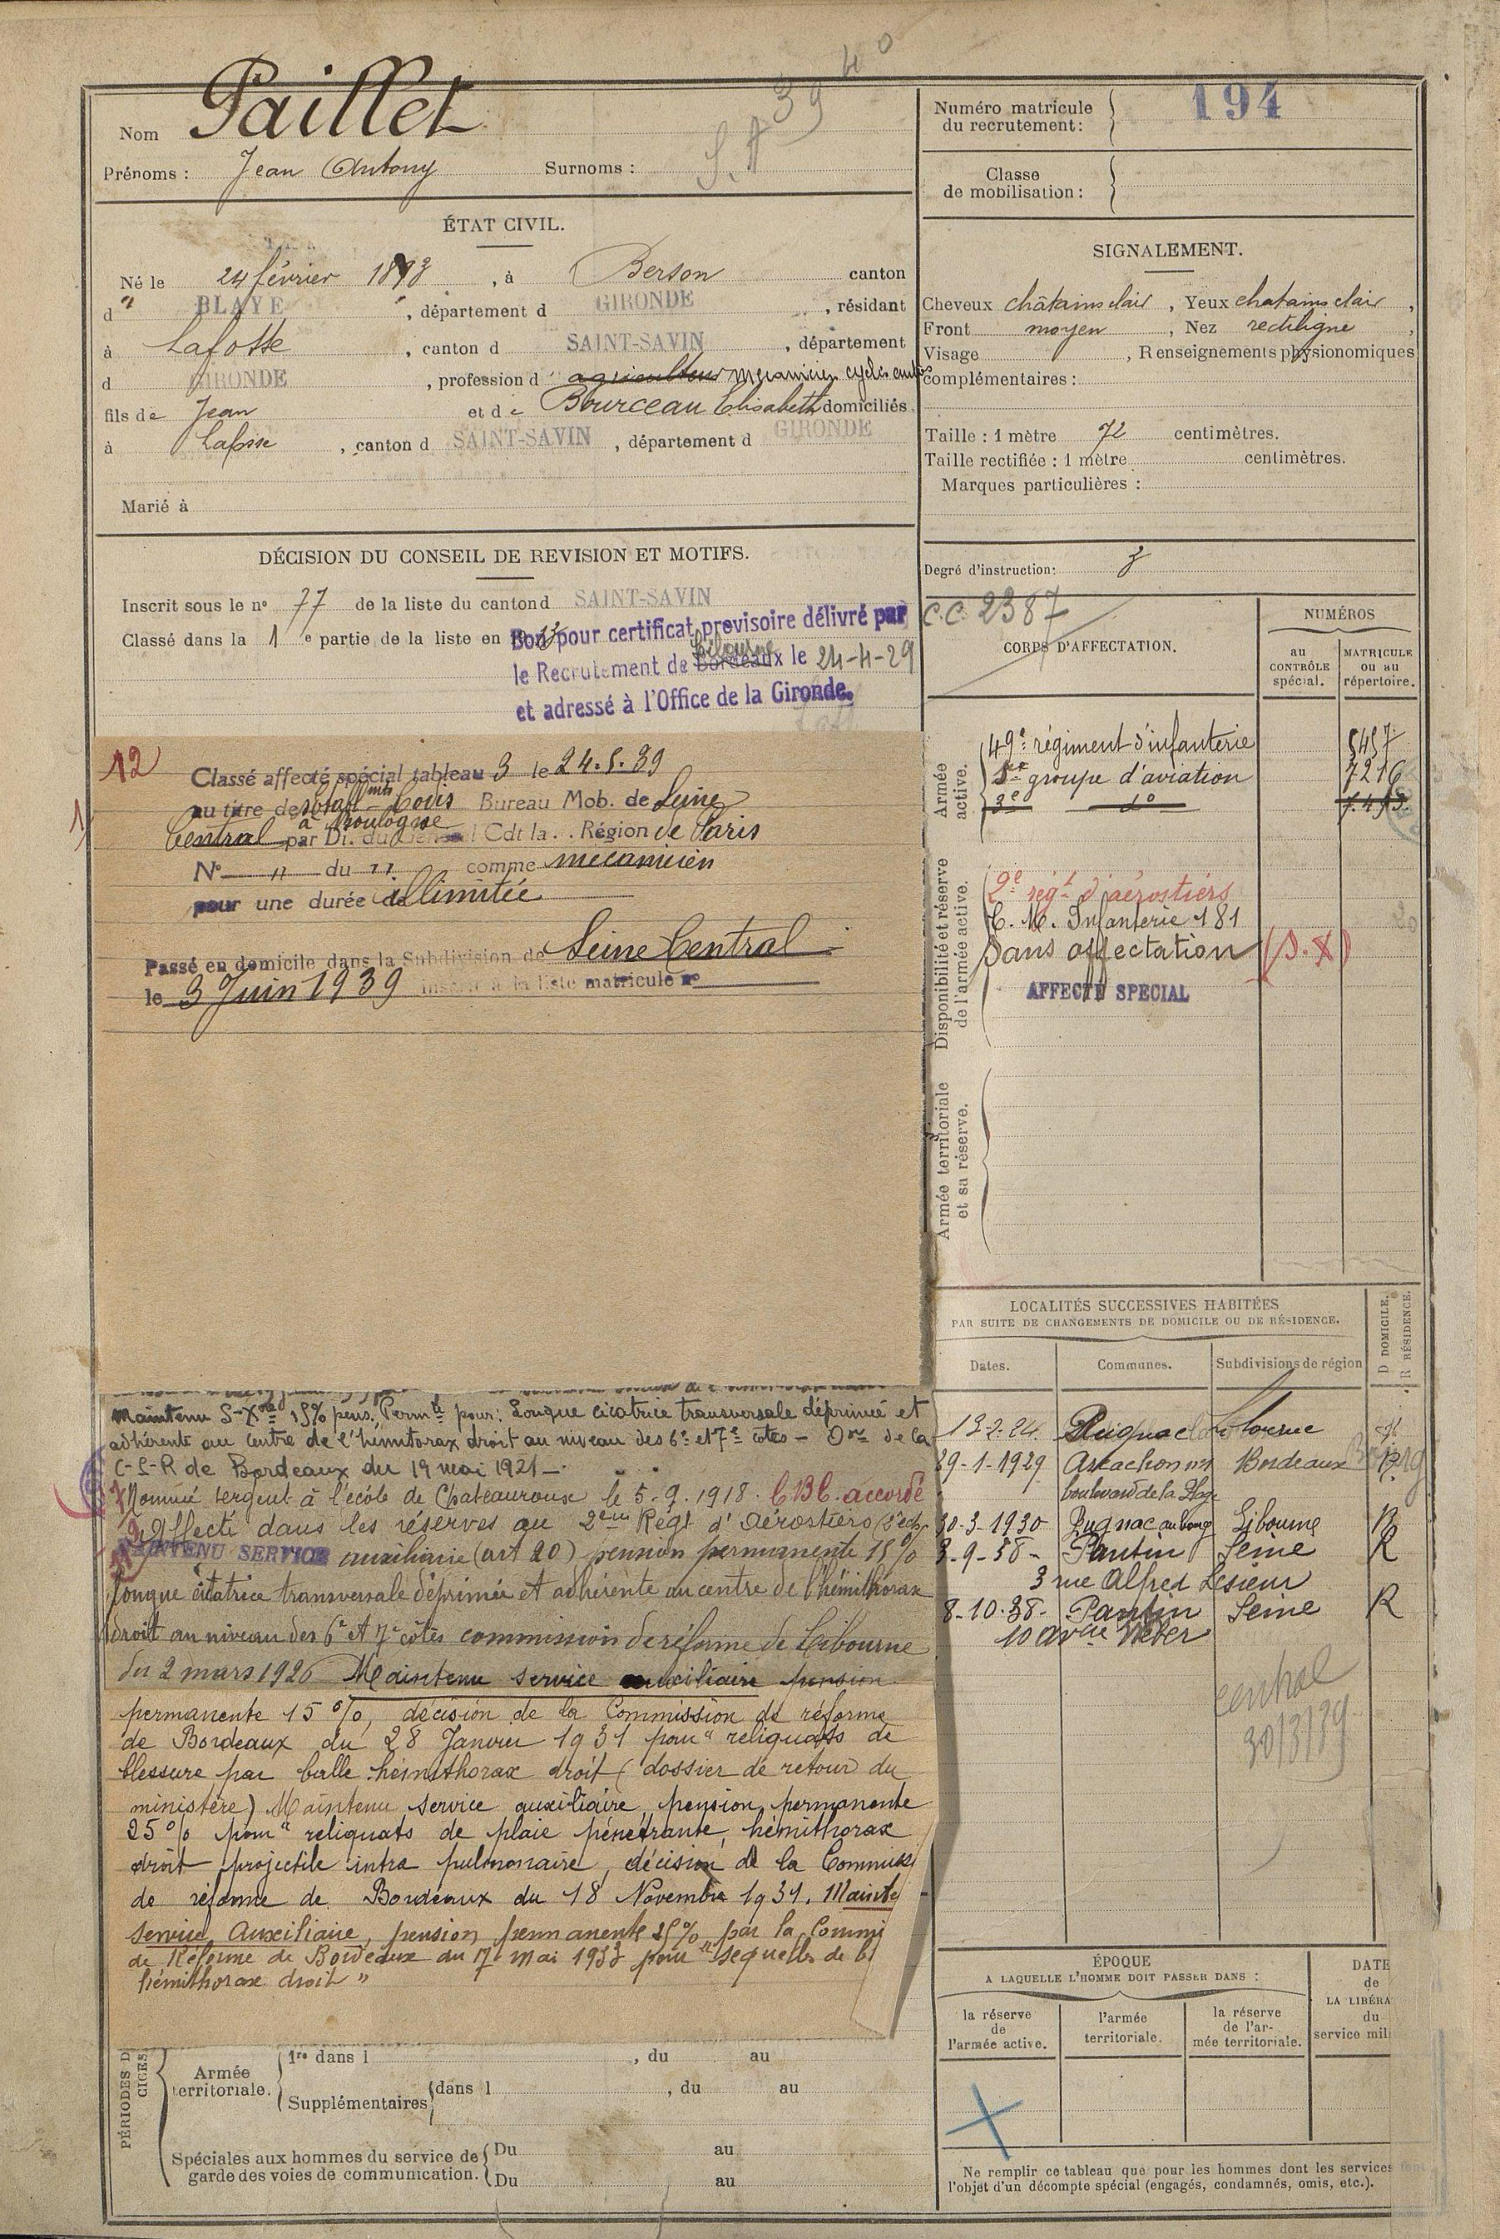 Nom Paillet
Prénoms : Jean Antony Surnoms :
S.A 39 40
Numéro matricule
du recrutement : 194
Classe
de mobilisation :
ÉTAT CIVIL.
Né le 24 février 1893, à Berson canton
d" BLAYE, département d GIRONDE, résidant
à Lafosse, canton d SAINT-SAVIN, département
d GIRONDE, profession d agriculteur mécanicien cycles
fils de Jean et de Bourceau Elisabeth domiciliés
à Lafosse, canton d SAINT-SAVIN, département d GIRONDE
Marié à
SIGNALEMENT.
Cheveux châtains clair, Yeux chatains clair,
Front moyen, Nez rectiligne,
Visage , Renseignements physionomiques
complémentaires :
Taille : 1 mètre 72 centimètres.
Taille rectifiée : 1 mètre centimètres.
Marques particulières :
Degré d'instruction : 3
DÉCISION DU CONSEIL DE REVISION ET MOTIFS.
Inscrit sous le nº 77 de la liste du canton d SAINT-SAVIN
Classé dans la 1 e partie de la liste en
Bon pour certificat provisoire délivré par
le Recrutement de Bordeaux Libourne le 24-4-29
et adressé à l'Office de la Gironde.
12
Classé affecté spécial tableau 3 le 24.5.39
au titre de Bureau Mob. de Seine
à Boulogne
Central par Di. du Cdt la . . Région de Paris
Nº " du " comme mécanicien
pour une durée de illimitée
Passé en domicile dans la Subdivision de Seine Central
le 3 Juin 1939 inscrit à la liste matricule nº
C.C. 2387
CORPS D'AFFECTATION.
NUMÉROS
au
CONTRÔLE
spécial.
MATRICULE
ou au
répertoire.
Armée
active.
49e régiment d'infanterie 5457
1er groupe d'aviation 7216
3e dº
Disponibilité et réserve
de l'armée active.
2e régt d'aérostiers
C. M. Infanterie 181
Sans affectation (S.X)
AFFECTÉ SPECIAL
Armée territoriale
et sa réserve.
Maintenu S-Xre 15% pens. Permte pour : Longue cicatrice transversale déprimée et
adhérente au centre de l'hémitorax droit au niveau des 6e et 7e côtes - Don de la
C-S-R de Bordeaux du 19 mai 1921 -
Nommé sergent à l'école de Chateauroux le 5.9.1918. CBC. accordé
Affecté dans les réserves au 2ème Régt d'Aérostiers
MAINTENU SERVICE auxiliaire (art 20) pension permanente 15%
longue cicatrice transversale déprimée et adhérente au centre de l'hémithorax
droit au niveau des 6e et 7e côtes commission de réforme de Libourne
du 2 mars 1926 Maintenu service auxiliaire pension
permanente 15%, décision de la Commission de réforme
de Bordeaux du 28 Janvier 1931 pour "reliquats de
blessure par balle hémithorax droit (dossier de retour du
ministère) Maintenu service auxiliaire, pension permanente
25% pour "reliquats de plaie pénétrante, hémithorax
droit projectile intra pulmonaire, décision de la Commiss
de réforme de Bordeaux du 18 Novembre 1931. Mainte
service Auxiliaire, pension permanente 25% par la Commi
de Réforme de Bordeaux du 17 mai 1933 pour "sequelles de bl
hémithorax droit"
LOCALITÉS SUCCESSIVES HABITÉES
PAR SUITE DE CHANGEMENTS DE DOMICILE OU DE RÉSIDENCE.
Dates. Communes. Subdivisions de région D DOMICILE. R RÉSIDENCE.
13-2-24. Pugnac Libourne
29-1-1929 Arcachon Bordeaux R
boulevard de la Plage
30-3-1930 Pugnac au bourg Libourne R
3-9-38- Pantin Seine R
3 rue Alfred Lesieur
8-10-38- Pantin Seine R
10 avue Weber
central
30/3/39
ÉPOQUE
A LAQUELLE L'HOMME DOIT PASSER DANS :
la réserve
de
l'armée active.
l'armée
territoriale.
la réserve
de l'ar-
mée territoriale.
DATE
de
LA LIBÉRA
du
service mili
PÉRIODES D
CICES
Armée
territoriale.
1re dans l , du au
Supplémentaires dans l , du au
Spéciales aux hommes du service de
garde des voies de communication.
Du au
Du au
Ne remplir ce tableau que pour les hommes dont les services font
l'objet d'un décompte spécial (engagés, condamnés, omis, etc.).